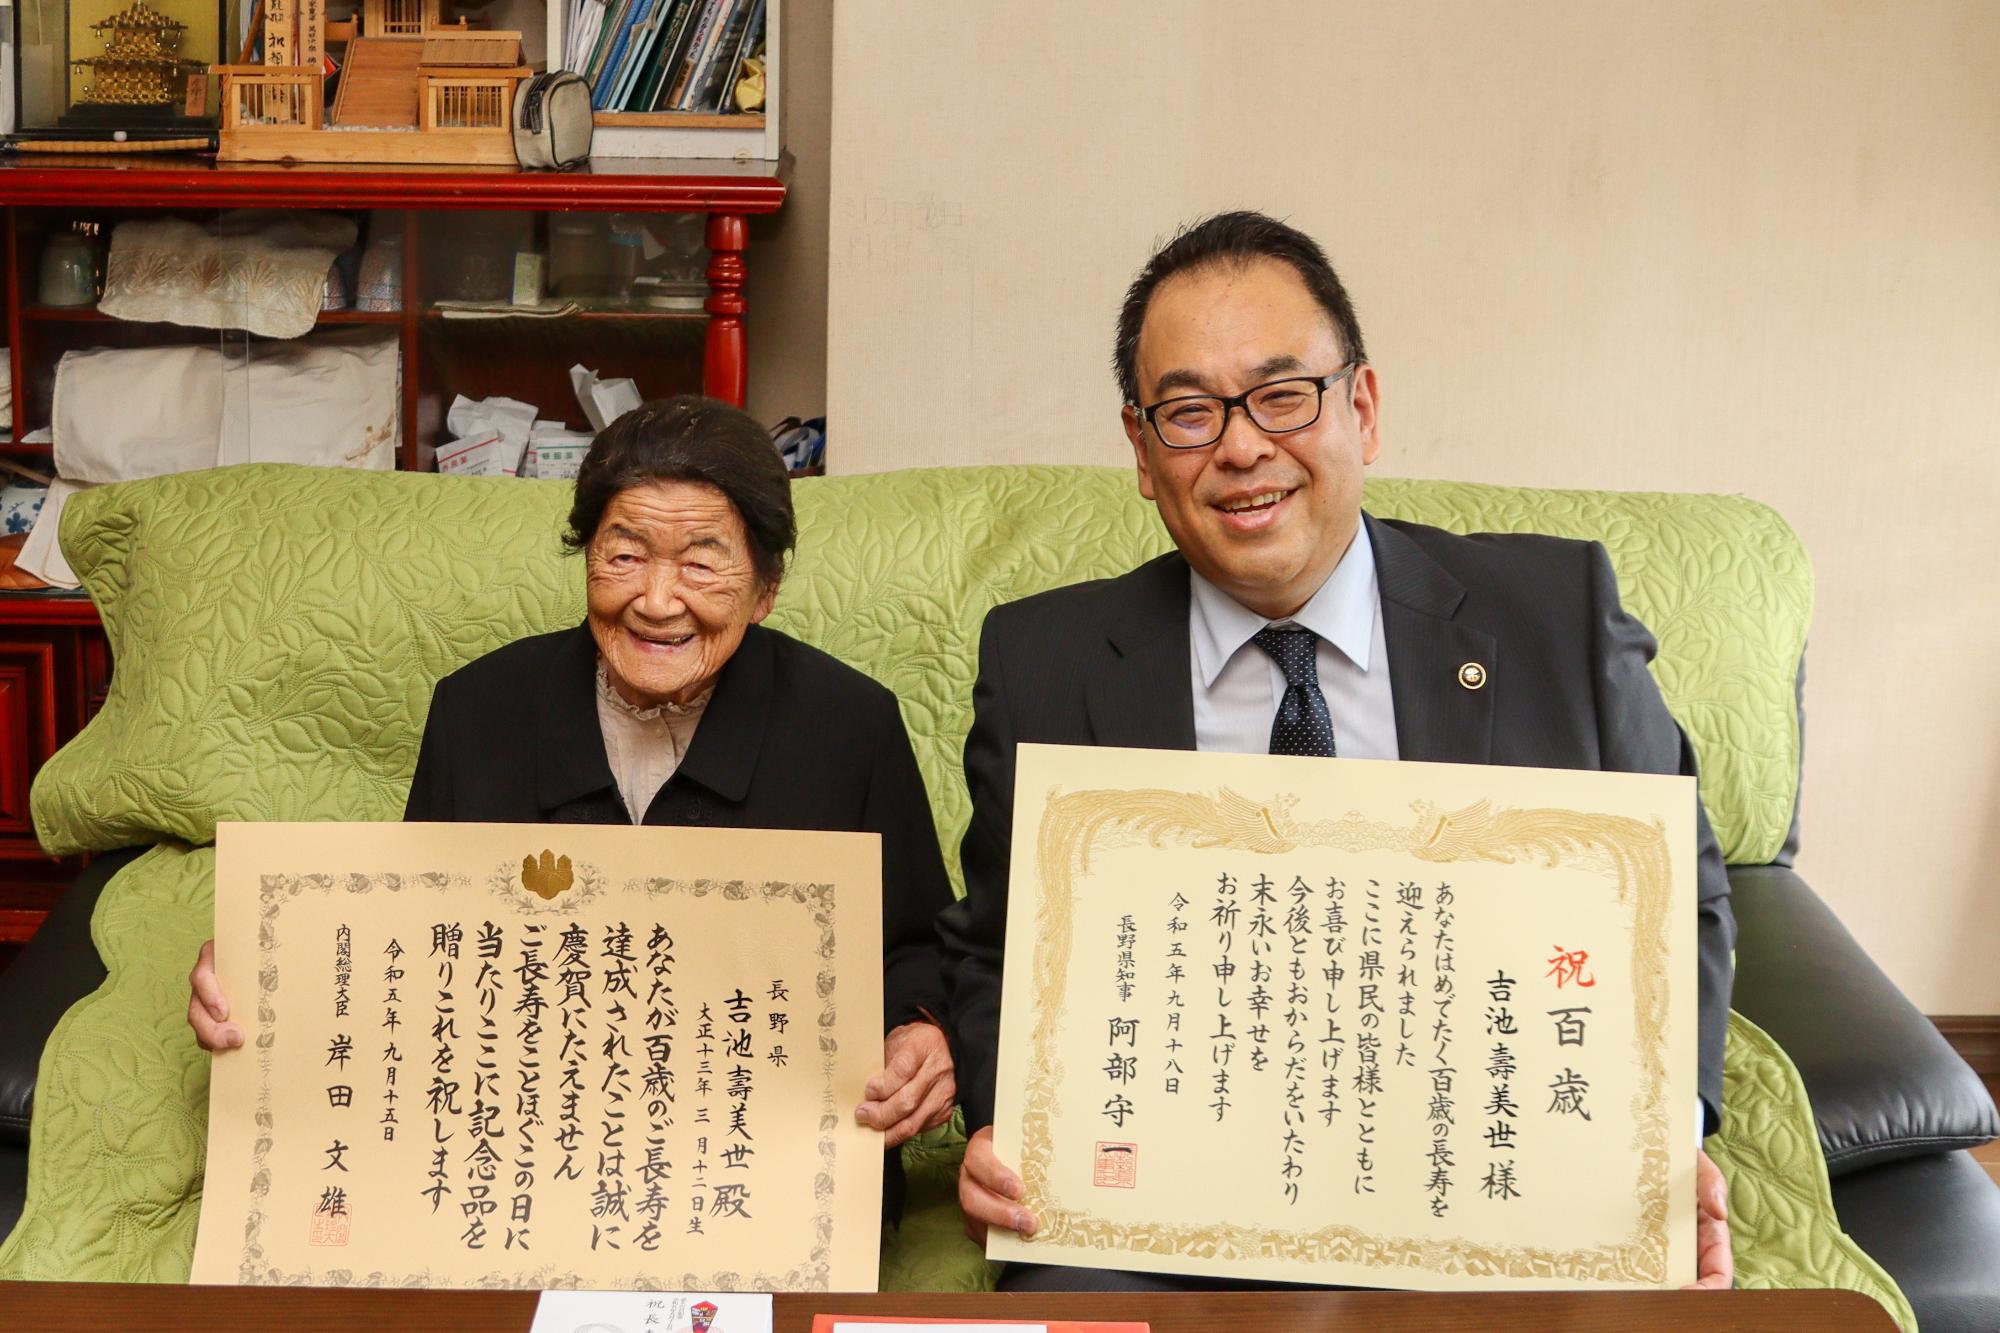 長野県
吉池壽美世殿
大正十三年三月十二日生
あなたが百歳のご長寿を
達成されたことは誠に
慶賀にたえません
ご長寿をことほぐこの日に
当たりここに記念品を
贈りこれを祝します
令和五年九月十五日
内閣総理大臣 岸田文雄
祝百歳
吉池壽美世様
あなたはめでたく百歳の長寿を
迎えられました
ここに県民の皆様とともに
お喜び申し上げます
今後ともおからだをいたわり
末永いお幸せを
お祈り申し上げます
令和五年九月十八日
長野県知事 阿部守一
祝長